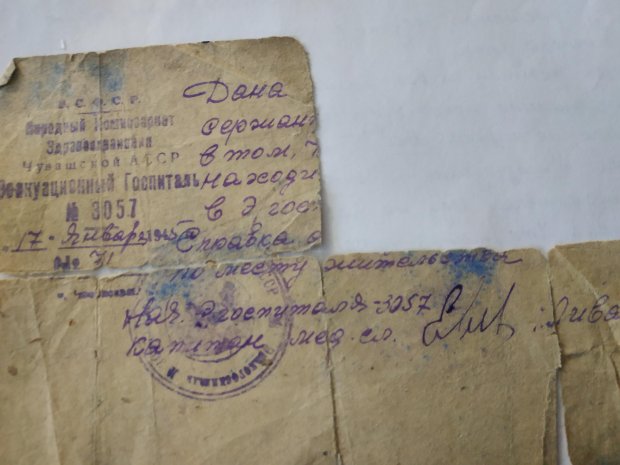 Р.С.Ф.С.Р.
Народный Комиссариат
Здравоохранения
Чувашской АССР
Эвакуационный Госпиталь
№ 3057
"17" Января 1945
№ 71
Дана
сержан
в том,
находи
в Э/гос
Справка
по месту жительства
Нач. Э/госпиталя-3057
капитан мед. сл.